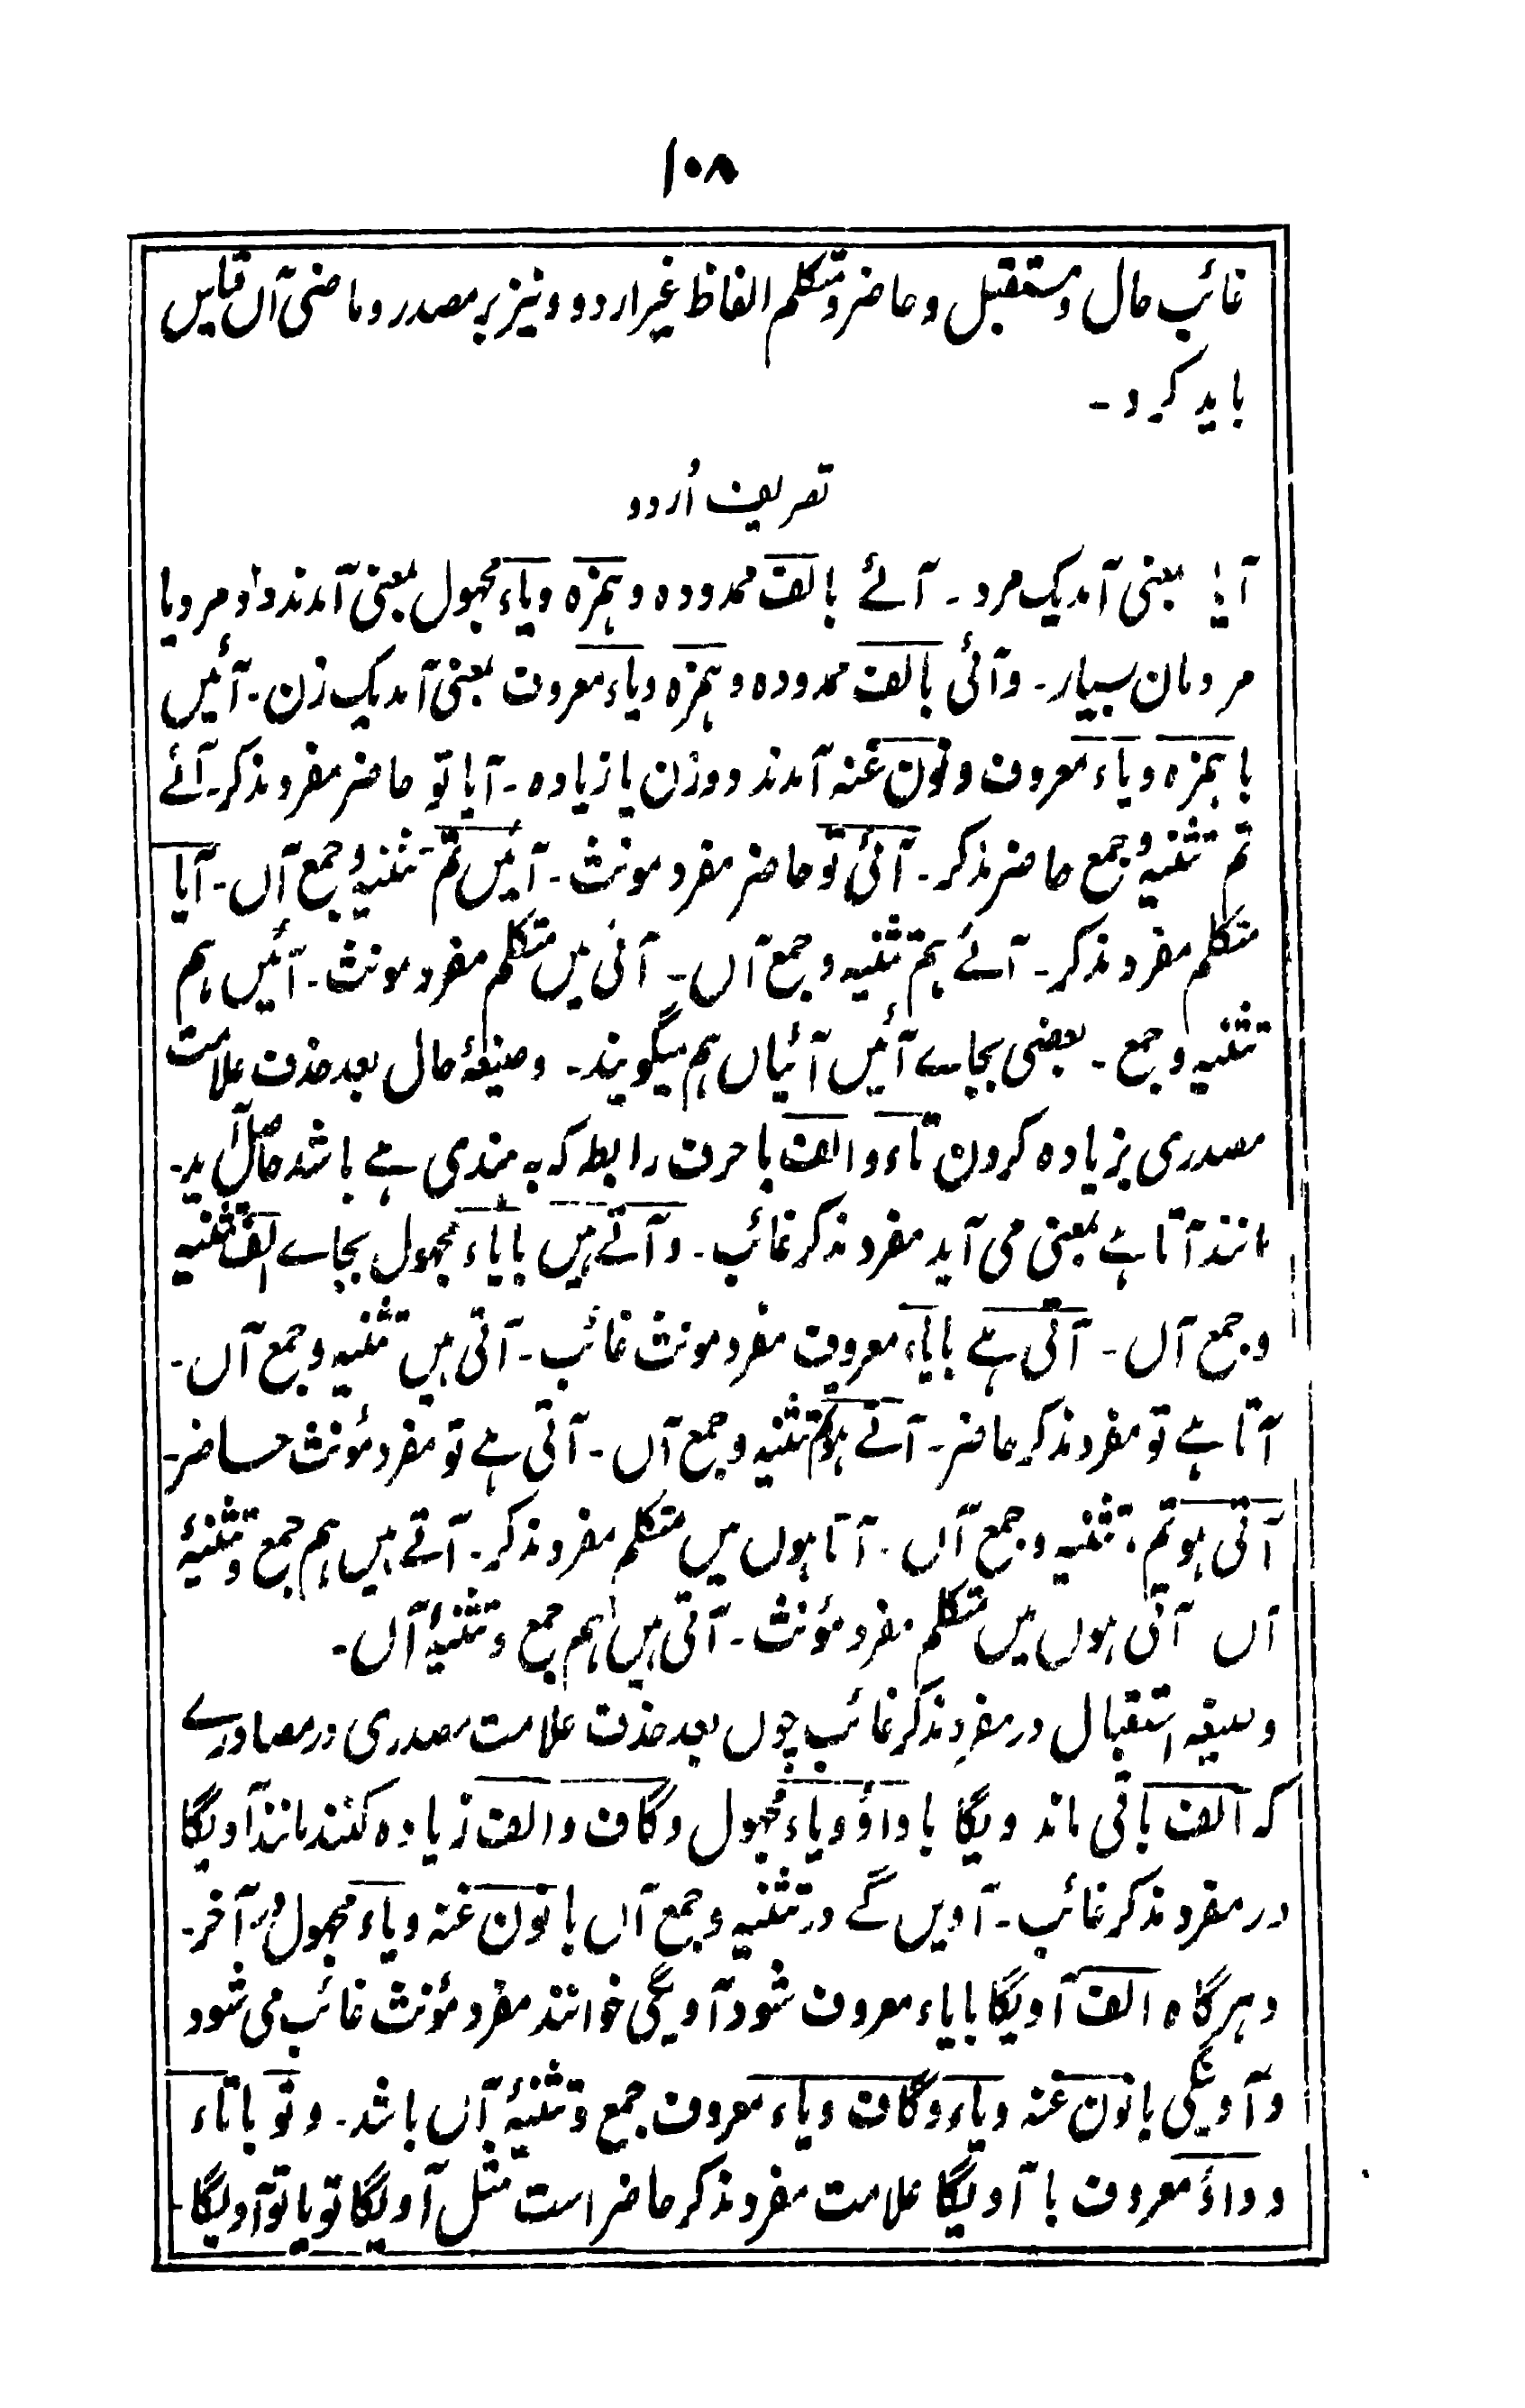 ۱۰۸
غائب حال و مستقبل و حاضر و متکلم الفاظ غیر اردو و نیز بر مصدر و ماضی آں قیاس
باید کرد -
تصریف اُردو
آیا بمعنی آمد یک مرد - آئے بالف ممدودہ و ہمزہ و یاء مجہول بمعنی آمدند دو مرد یا
مردمان بسیار - و آئی بالف ممدودہ و ہمزہ و یاء معروف بمعنی آمد یک زن - آئیں
با ہمزہ و یاء معروف و نون غنہ آمدند دو زن یا زیادہ - آیا تو حاضر مفرد مذکر - آئے
تم تثنیہ و جمع حاضر مذکر - آئی تو حاضر مفرد مونث - آئیں تم تثنیہ و جمع آں - آیا
متکلم مفرد مذکر - آئے ہم تثنیہ و جمع آں - آئی میں متکلم مفرد مونث - آئیں ہم
تثنیہ و جمع - بعضی بجاے آئیں آئیاں ہم میگویند - و صیغۂ حال بعد حذف علامت
مصدری بزیادہ کردن تاء و الف با حرف رابطہ کہ بہ ہندی ہے باشد حاصل آید -
مانند آتا ہے بمعنی می آید مفرد مذکر غائب - و آتے ہیں با یاء مجہول بجاے الف تثنیہ
و جمع آں - آتی ہے با یاء معروف مفرد مونث غائب - آتی ہیں تثنیہ و جمع آں -
آتا ہے تو مفرد مذکر حاضر - آتے ہو تم تثنیہ و جمع آں - آتی ہے تو مفرد مؤنث حاضر -
آتی ہو تم تثنیہ و جمع آں - آتا ہوں میں متکلم مفرد مذکر - آتے ہیں ہم جمع و تثنیۂ
آں آتی ہوں میں متکلم مفرد مؤنث - آتی ہیں ہم جمع و تثنیۂ آں -
و صیغہ استقبال در مفرد مذکر غائب چوں بعد حذف علامت مصدری در مصادرے
کہ الف باقی ماند ویگا با واؤ و یاء مجہول و گاف و الف زیادہ کنند مانند آویگا
در مفرد مذکر غائب - آویں گے در تثنیہ و جمع آں با نون غنہ و یاء مجہول در آخر -
و ہرگاہ الف آویگا با یاء معروف شود آویگی خوانند مفرد مؤنث غائب می شود
و آوینگی با نون غنہ و یاء و گاف و یاء معروف جمع و تثنیۂ آں باشد - و تو با تاء
و واؤ معروف با آویگا علامت مفرد مذکر حاضر است مثل آویگا تو یا تو آویگا -